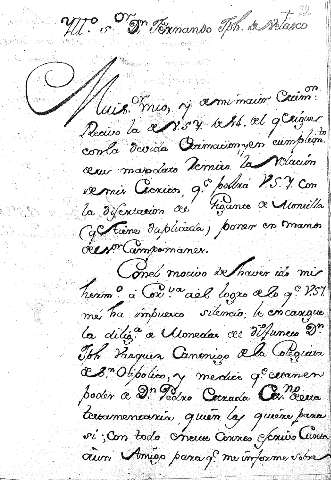 Ill.mo S.or D.n Fernando Jph. de Velasco
Mui S.or mio, y de mi maior
Recivo la de V.S.Y. de 26. del q.e sigue
con la devida y en cumplim.to
de su mandato remito la Relación
de mis Escritos, q.e podrá V.S.Y. con
la disertacion del Gigante de Montilla
(q.e tiene duplicada) poner en manos
de s.or Campomanes.
Con el motivo de haver ido mis
herm.o á Cor.va a el logro de lo q.e V.S.Y.
me ha impuesto silencio, le encargue
la dilig.a de Monedas del difunto D.n
Jph Vazquez Canonigo de la Colegiata
de S.n Hipolito, y me dice q.e estan en
poder de D.n Pedro Cerrada de esta
testamentaria, quien las quiere para
si; con todo en este Correo escrivo Carta
a un Amigo para q.e me informe sobre